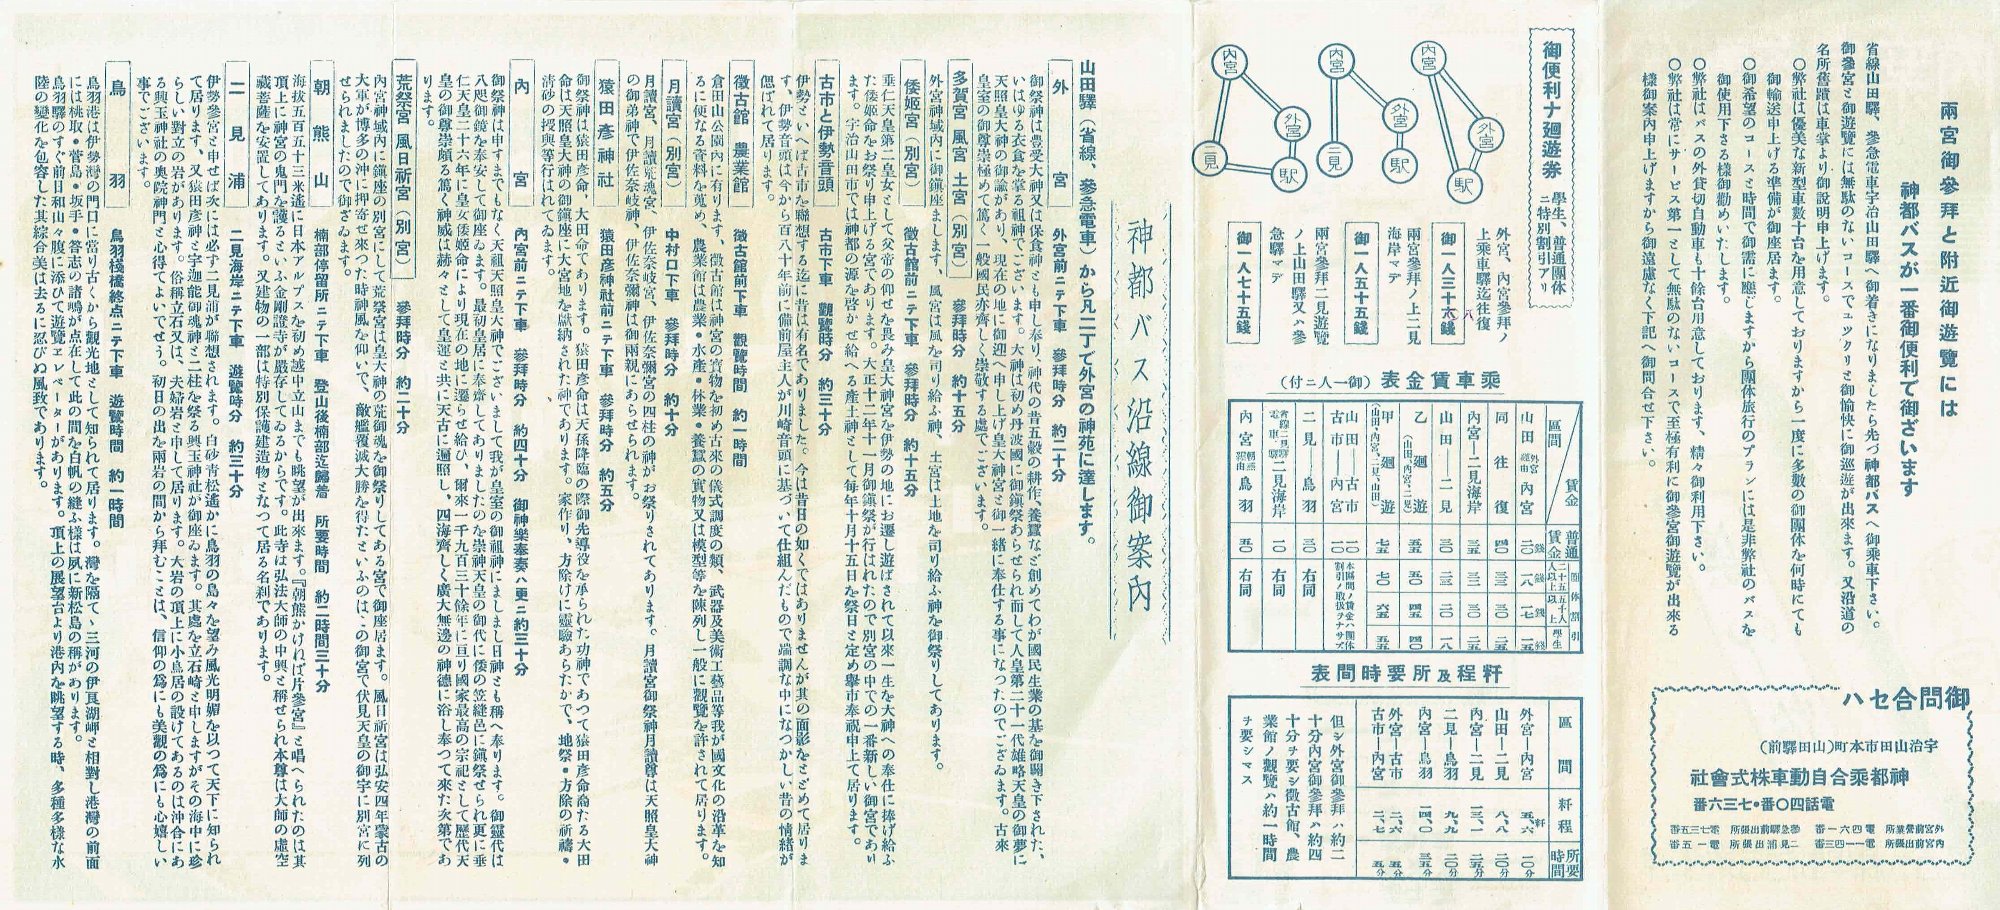 兩宮御參拜と附近御遊覽には
神都バスが一番御便利で御ざいます
省線山田驛、參急電車宇治山田驛へ御着きになりましたら先づ神都バスへ御乘車下さい。
御參宮と御遊覽には無駄のないコースでユックリと御愉快に御巡遊が出來ます。又沿道の
名所舊蹟は車掌より御說明申上げます。
○弊社は優美な新型車數十台を用意しておりますから一度に多數の御團体を何時にても
御輸送申上げる準備が御座居ます。
○御希望のコースと時間で御需に應じますから團体旅行のプランには是非弊社のバスを
御使用下さる樣御勸めいたします。
○弊社はバスの外貸切自動車も十餘台用意しております、精々御利用下さい。
○弊社は常にサービス第一として無駄のないコースで至極有利に御參宮御遊覽が出來る
樣御案内申上げますから御遠慮なく下記へ御問合せ下さい。
御問合セハ
宇治山田市本町(山田驛前)
神都乘合自動車株式會社
電話四〇番・七三六番
外宮前營業所 電四六一番 參急驛前出張所 電七三五番
内宮前出張所 電一一四三番 二見浦出張所 電一五番
御便利ナ廻遊券
學生、普通團体
ニ特別割引アリ
内宮
外宮
驛
内宮
外宮
二見
驛
内宮
外宮
二見
驛
外宮、内宮參拜ノ
上乘車驛迄往復
御一人三十六錢
八
兩宮參拜ノ上二見
海岸マデ
御一人五十五錢
兩宮參拜二見遊覽
ノ上山田驛又ハ參
急驛マデ
御一人七十五錢
乘車賃金表(御一人ニ付)
區間
賃金
普通賃金
團体割引
二十五人以上
五十人以上
學生
山田 外宮經由 内宮
二〇錢
一八錢
一七錢
一五錢
同 往復
四〇
三三
三〇
二五
内宮―二見海岸
三五
三二
三〇
二五
山田―二見
三〇
二三
二〇
一八
乙 廻遊(山田、内宮、二見)
五五
五〇
四五
四〇
甲 廻遊(山田、内宮、二見、山田)
七五
七〇
六五
五五
山田―古市
一〇
古市―内宮
一〇
本區間ノ賃金ハ團体
割引ノ取扱ヲナサズ
二見―鳥羽
三〇
右同
省線二見驛電車二見驛 二見海岸
一〇
右同
内宮 朝熊經由 鳥羽
五〇
右同
粁程及所要時間表
區間
粁程
所要時間
外宮―内宮
五、六粁
二〇分
山田―二見
八、八
二〇分
内宮―二見
一三、一
二五分
二見―鳥羽
九、九
二〇分
内宮―鳥羽
二四、〇
三五分
外宮―古市
二、六
五分
古市―内宮
二、七
五分
但シ外宮御參拜ハ約二
十分内宮御參拜ハ約四
十分ヲ要シ徵古館、農
業館ノ觀覽ハ約一時間
ヲ要シマス
神都バス沿線御案内
山田驛(省線、參急電車)から凡二丁で外宮の神苑に達します。
外宮 外宮前ニテ下車 參拜時分 約二十分
御祭神は豊受大神又は保食神とも申し奉り、神代の昔五穀の耕作、養蠶など創めてわが國民生業の基を御開き下された、
いはゆる衣食を掌る祖神でございます。大神は初め丹波國に御鎭祭あらせられ而して人皇第二十一代雄略天皇の御夢に
天照皇大神の御諭があり、現在の地に御迎へ申し上げ皇大神宮と御一緒に奉仕する事になつたのでござゐます。古來
皇室の御尊崇極めて篤く一般國民亦齊しく崇敬する處でございます。
多賀宮 風宮 土宮(別宮) 參拜時分 約十五分
外宮神域内に御鎭座まします、風宮は風を司り給ふ神、土宮は土地を司り給ふ神を御祭りしてあります。
倭姬宮(別宮) 徵古館前ニテ下車 參拜時分 約十五分
垂仁天皇第二皇女として父帝の仰せを畏み皇大神宮を伊勢の地にお遷し遊ばされて以來一生を大神への奉仕に捧げ給ふ
た倭姬命をお祭り申上げる宮であります。大正十二年十一月御鎭祭が行はれたので別宮の中での一番新しい御宮であり
ます。宇治山田市では神都の源を啓かせ給へる產土神として每年十月十五日を祭日と定め擧市奉祝申上て居ります。
古市と伊勢音頭 古市下車 觀覽時分 約三十分
伊勢といへば古市を聯想する迄に昔は有名でありました。今は昔日の如くではありませんが其の面影をとどめて居りま
す、伊勢音頭は今から百八十年前に備前屋主人が川崎音頭に基づいて仕組んだもので端調な中になつかしい昔の情緖が
偲ばれて居ります。
徵古館 農業館 徵古館前下車 觀覽時間 約一時間
倉田山公園内に有ります、徵古館は神宮の寶物を初め古來の儀式調度の類、武器及美術工藝品等我が國文化の沿革を知
るに便なる資料を蒐め、農業館は農業・水產・林業・養蠶の實物又は模型等を陳列し一般に觀覽を許されて居ります。
月讀宮(別宮) 中村口下車 參拜時分 約十分
月讀宮、月讀荒魂宮、伊佐奈岐宮、伊佐奈彌宮の四柱の神がお祭りされてあります。月讀宮御祭神月讀尊は天照皇大神
の御弟神で伊佐奈岐神、伊佐奈彌神は御兩親にあらせられます。
猿田彥神社 猿田彥神社前ニテ下車 參拜時分 約五分
御祭神は猿田彥命、大田命であります。猿田彥命は天孫降臨の際御先導役を承られた功神であつて猿田彥命裔たる大田
命は天照皇大神の御鎭座に大宮地を獻納された神であります。家作り、方除けに靈驗あらたかで、地祭・方除の祈禱・
淸砂の授與等行はれてゐます。
内宮 内宮前ニテ下車 參拜時分 約四十分 御神樂奏奏ハ更ニ約三十分
御祭神は申すまでもなく天祖天照皇大神でございまして我が皇室の御祖神にましまし日神とも稱へ奉ります。御靈代は
八咫御鏡を奉安して御座ゐます。最初皇居に奉齋してありましたのを崇神天皇の御代に倭の笠縫邑に鎭祭せられ更に垂
仁天皇二十六年に皇女倭姬命により現在の地に遷らせ給ひ、爾來一千九百三十餘年に亘り國家最高の宗祀として歷代天
皇の御尊崇頗る篤く神威は赫々として皇運と共に天古に遍照し、四海齊しく廣大無邊の神德に浴し奉つて來た次第であ
ります。
荒祭宮 風日祈宮(別宮) 參拜時分 約二十分
内宮神域内に鎭座の別宮にして荒祭宮は皇大神の荒御魂を御祭りしてある宮で御座居ます。風日祈宮は弘安四年蒙古の
大軍が博多の沖に押寄せ來つた時神風を仰いで、敵艦覆滅大勝を得たといふのは、この御宮で伏見天皇の御宇に別宮に列
せられましたので御ざゐます。
朝熊山 楠部停留所ニテ下車 登山後楠部迄歸着 所要時間 約二時間三十分
海拔五百五十三米遙に日本アルプスを初め越中立山までも眺望が出來ます。『朝熊かけねば片參宮』と唱へられたのは其
頂上に神宮の鬼門を護るといふ金剛證寺が嚴存してゐるからです。此寺は弘法大師の中興と稱せられ本尊は大師の虛空
藏菩薩を安置してあります。又建物の一部は特別保護建造物となつて居る名刹であります。
二見浦 二見海岸ニテ下車 遊覽時分 約三十分
伊勢參宮と申せば次には必す二見浦が聯想されます。白砂靑松遙かに鳥羽の島々を望み風光明媚を以つて天下に知られ
て居ります、又猿田彥神と宇迦能御魂神と二柱を祭る興玉神社が御座ゐます。其處を立石崎と申しますがその海中に珍
らしい對立の岩があります。俗稱立石又は、夫婦岩と申して居ります。大岩の頂上に小鳥居の設けてあるのは沖合にあ
る興玉神社の奧院神門と心得てよいでせう。初日の出を兩岩の間から拜むことは、信仰の爲にも美觀の爲にも心嬉しい
事でございます。
鳥羽 鳥羽棧橋終点ニテ下車 遊覽時間 約一時間
鳥羽港は伊勢灣の門口に當り古くから觀光地として知られて居ります。灣を隔て丶三河の伊良湖岬と相對し港灣の前面
には桃取・菅島・坂手・答志の諸嶋が点在して此の間を白帆の縫ふ樣は夙に新松島の稱があります。
鳥羽驛のすぐ前日和山々腹に添ひて遊覽エレベーターがあります。頂上の展望台より港内を眺望する時、多種多樣な水
陸の變化を包容した其綜合美は去るに忍びぬ風致であります。